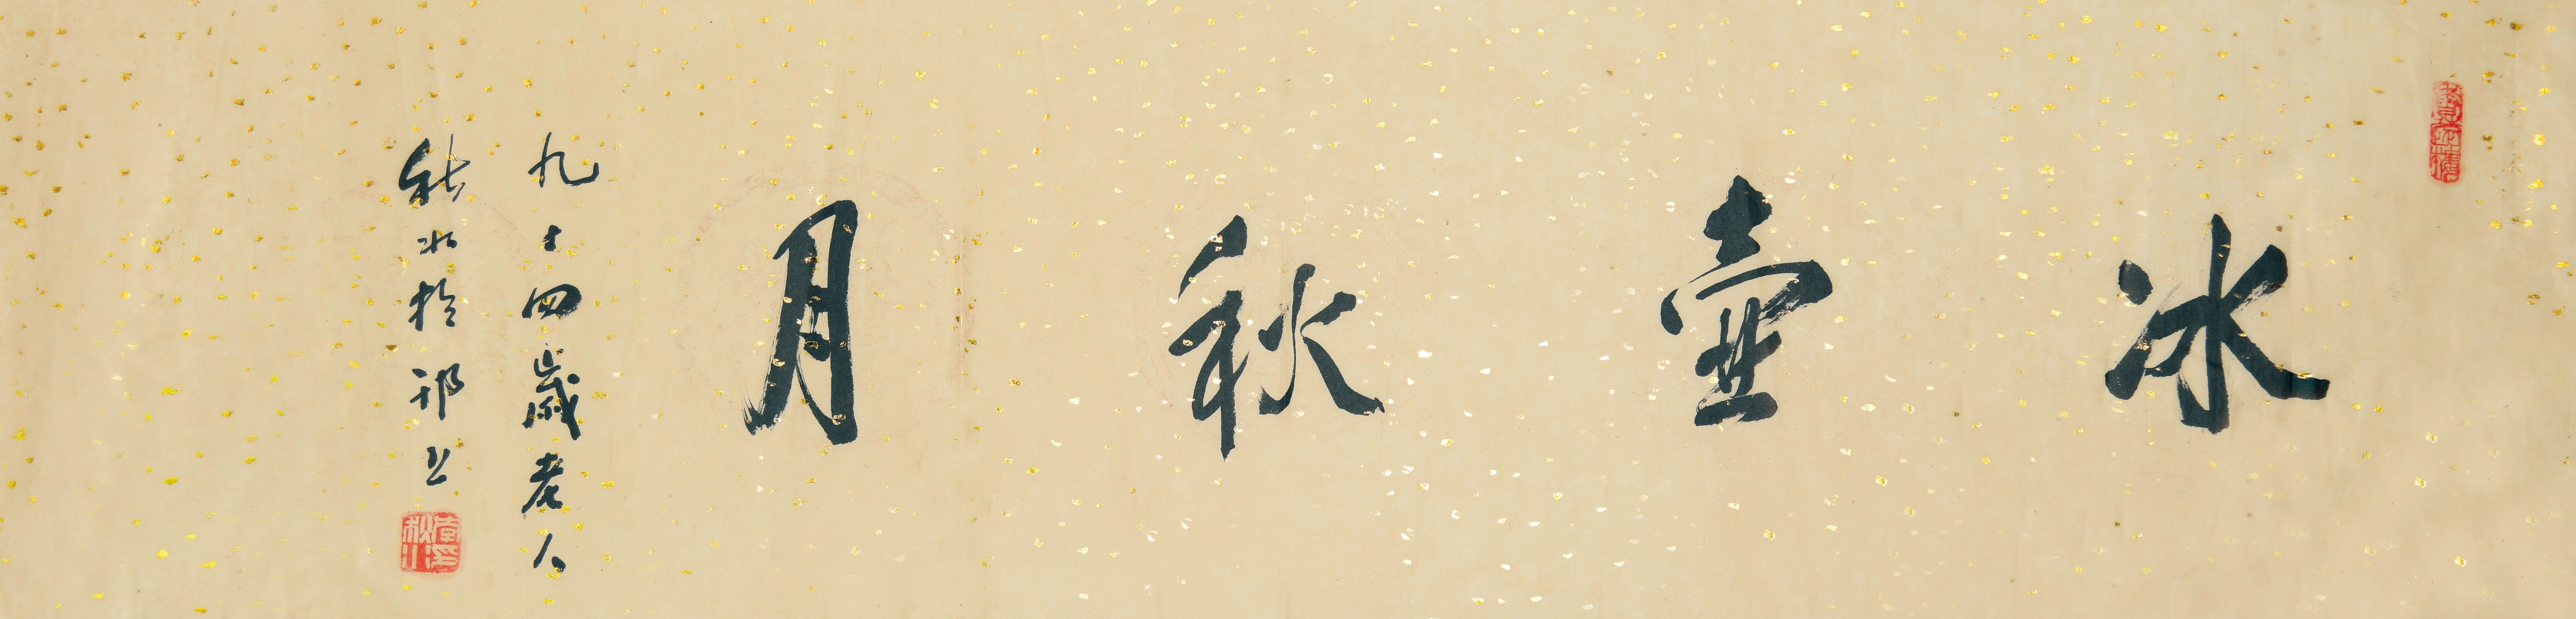 冰壺秋月
九十四歲老人
秋水於邗上